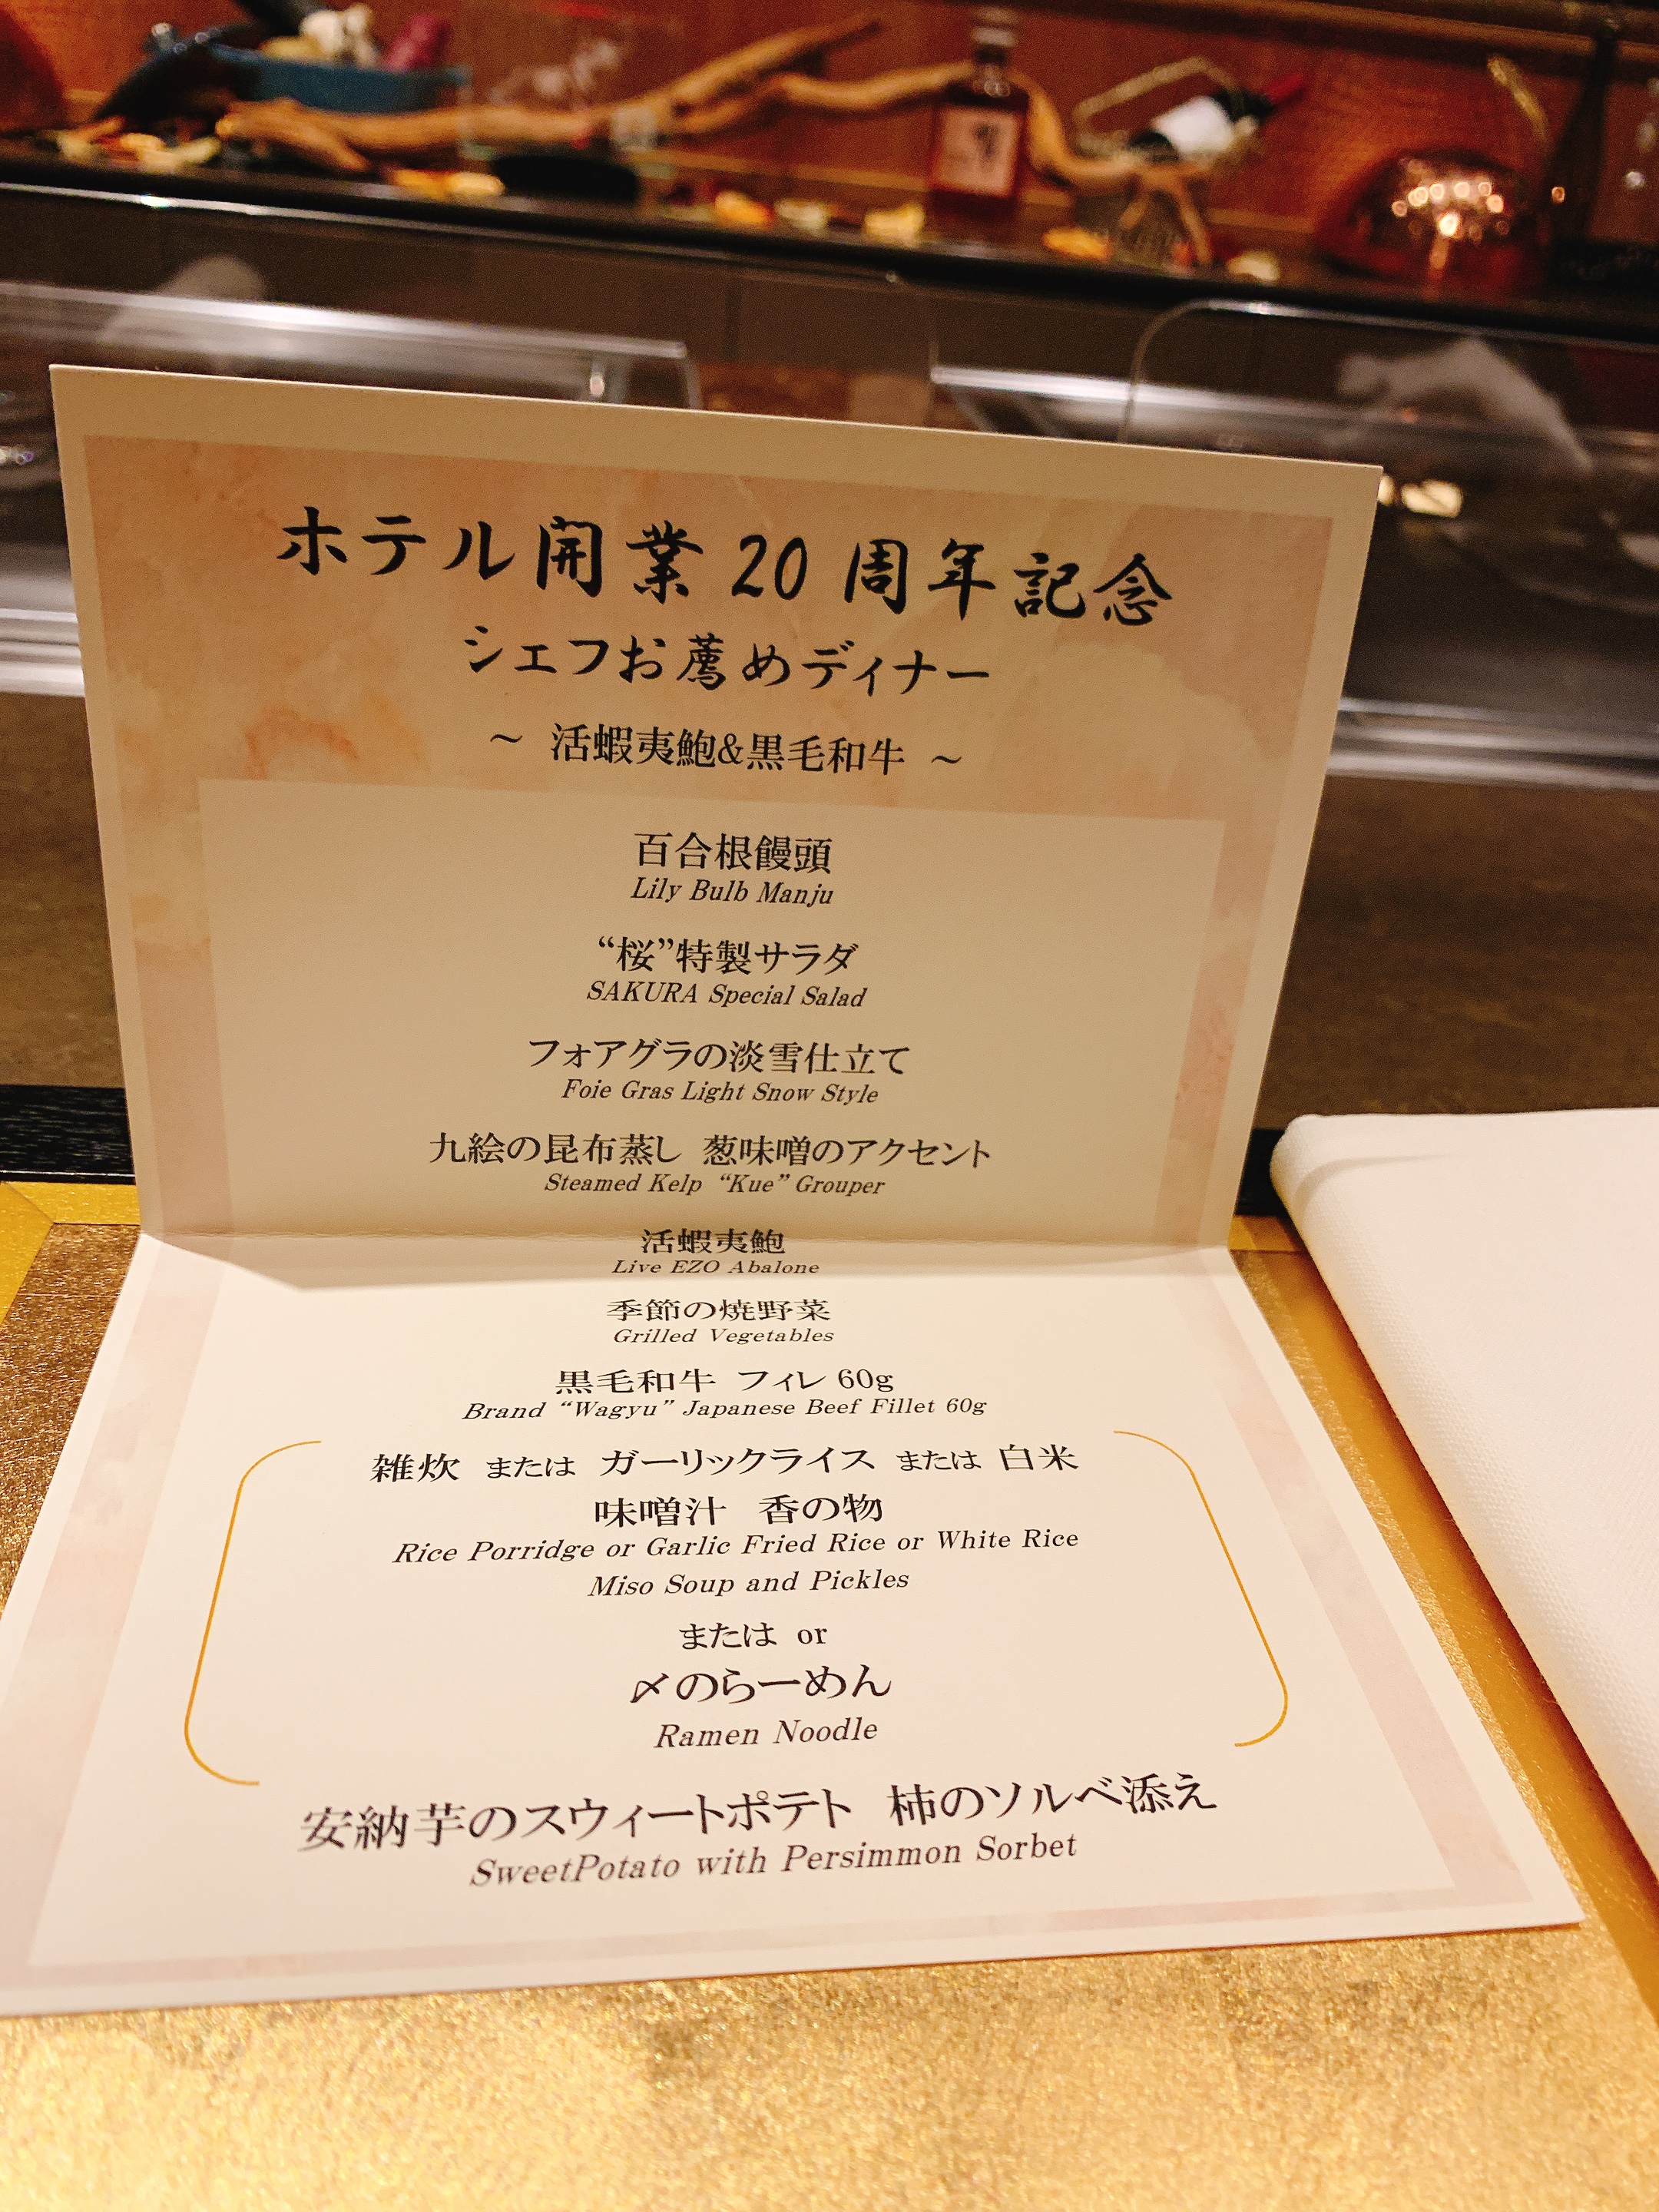 ホテル開業 20 周年記念
シェフお薦めディナー
～ 活蝦夷鮑&黒毛和牛 ～
百合根饅頭
Lily Bulb Manju
“桜”特製サラダ
SAKURA Special Salad
フォアグラの淡雪仕立て
Foie Gras Light Snow Style
九絵の昆布蒸し 葱味噌のアクセント
Steamed Kelp “Kue” Grouper
活蝦夷鮑
Live EZO Abalone
季節の焼野菜
Grilled Vegetables
黒毛和牛 フィレ 60g
Brand “Wagyu” Japanese Beef Fillet 60g
雑炊 または ガーリックライス または 白米
味噌汁 香の物
Rice Porridge or Garlic Fried Rice or White Rice
Miso Soup and Pickles
または or
〆のらーめん
Ramen Noodle
安納芋のスウィートポテト 柿のソルベ添え
SweetPotato with Persimmon Sorbet